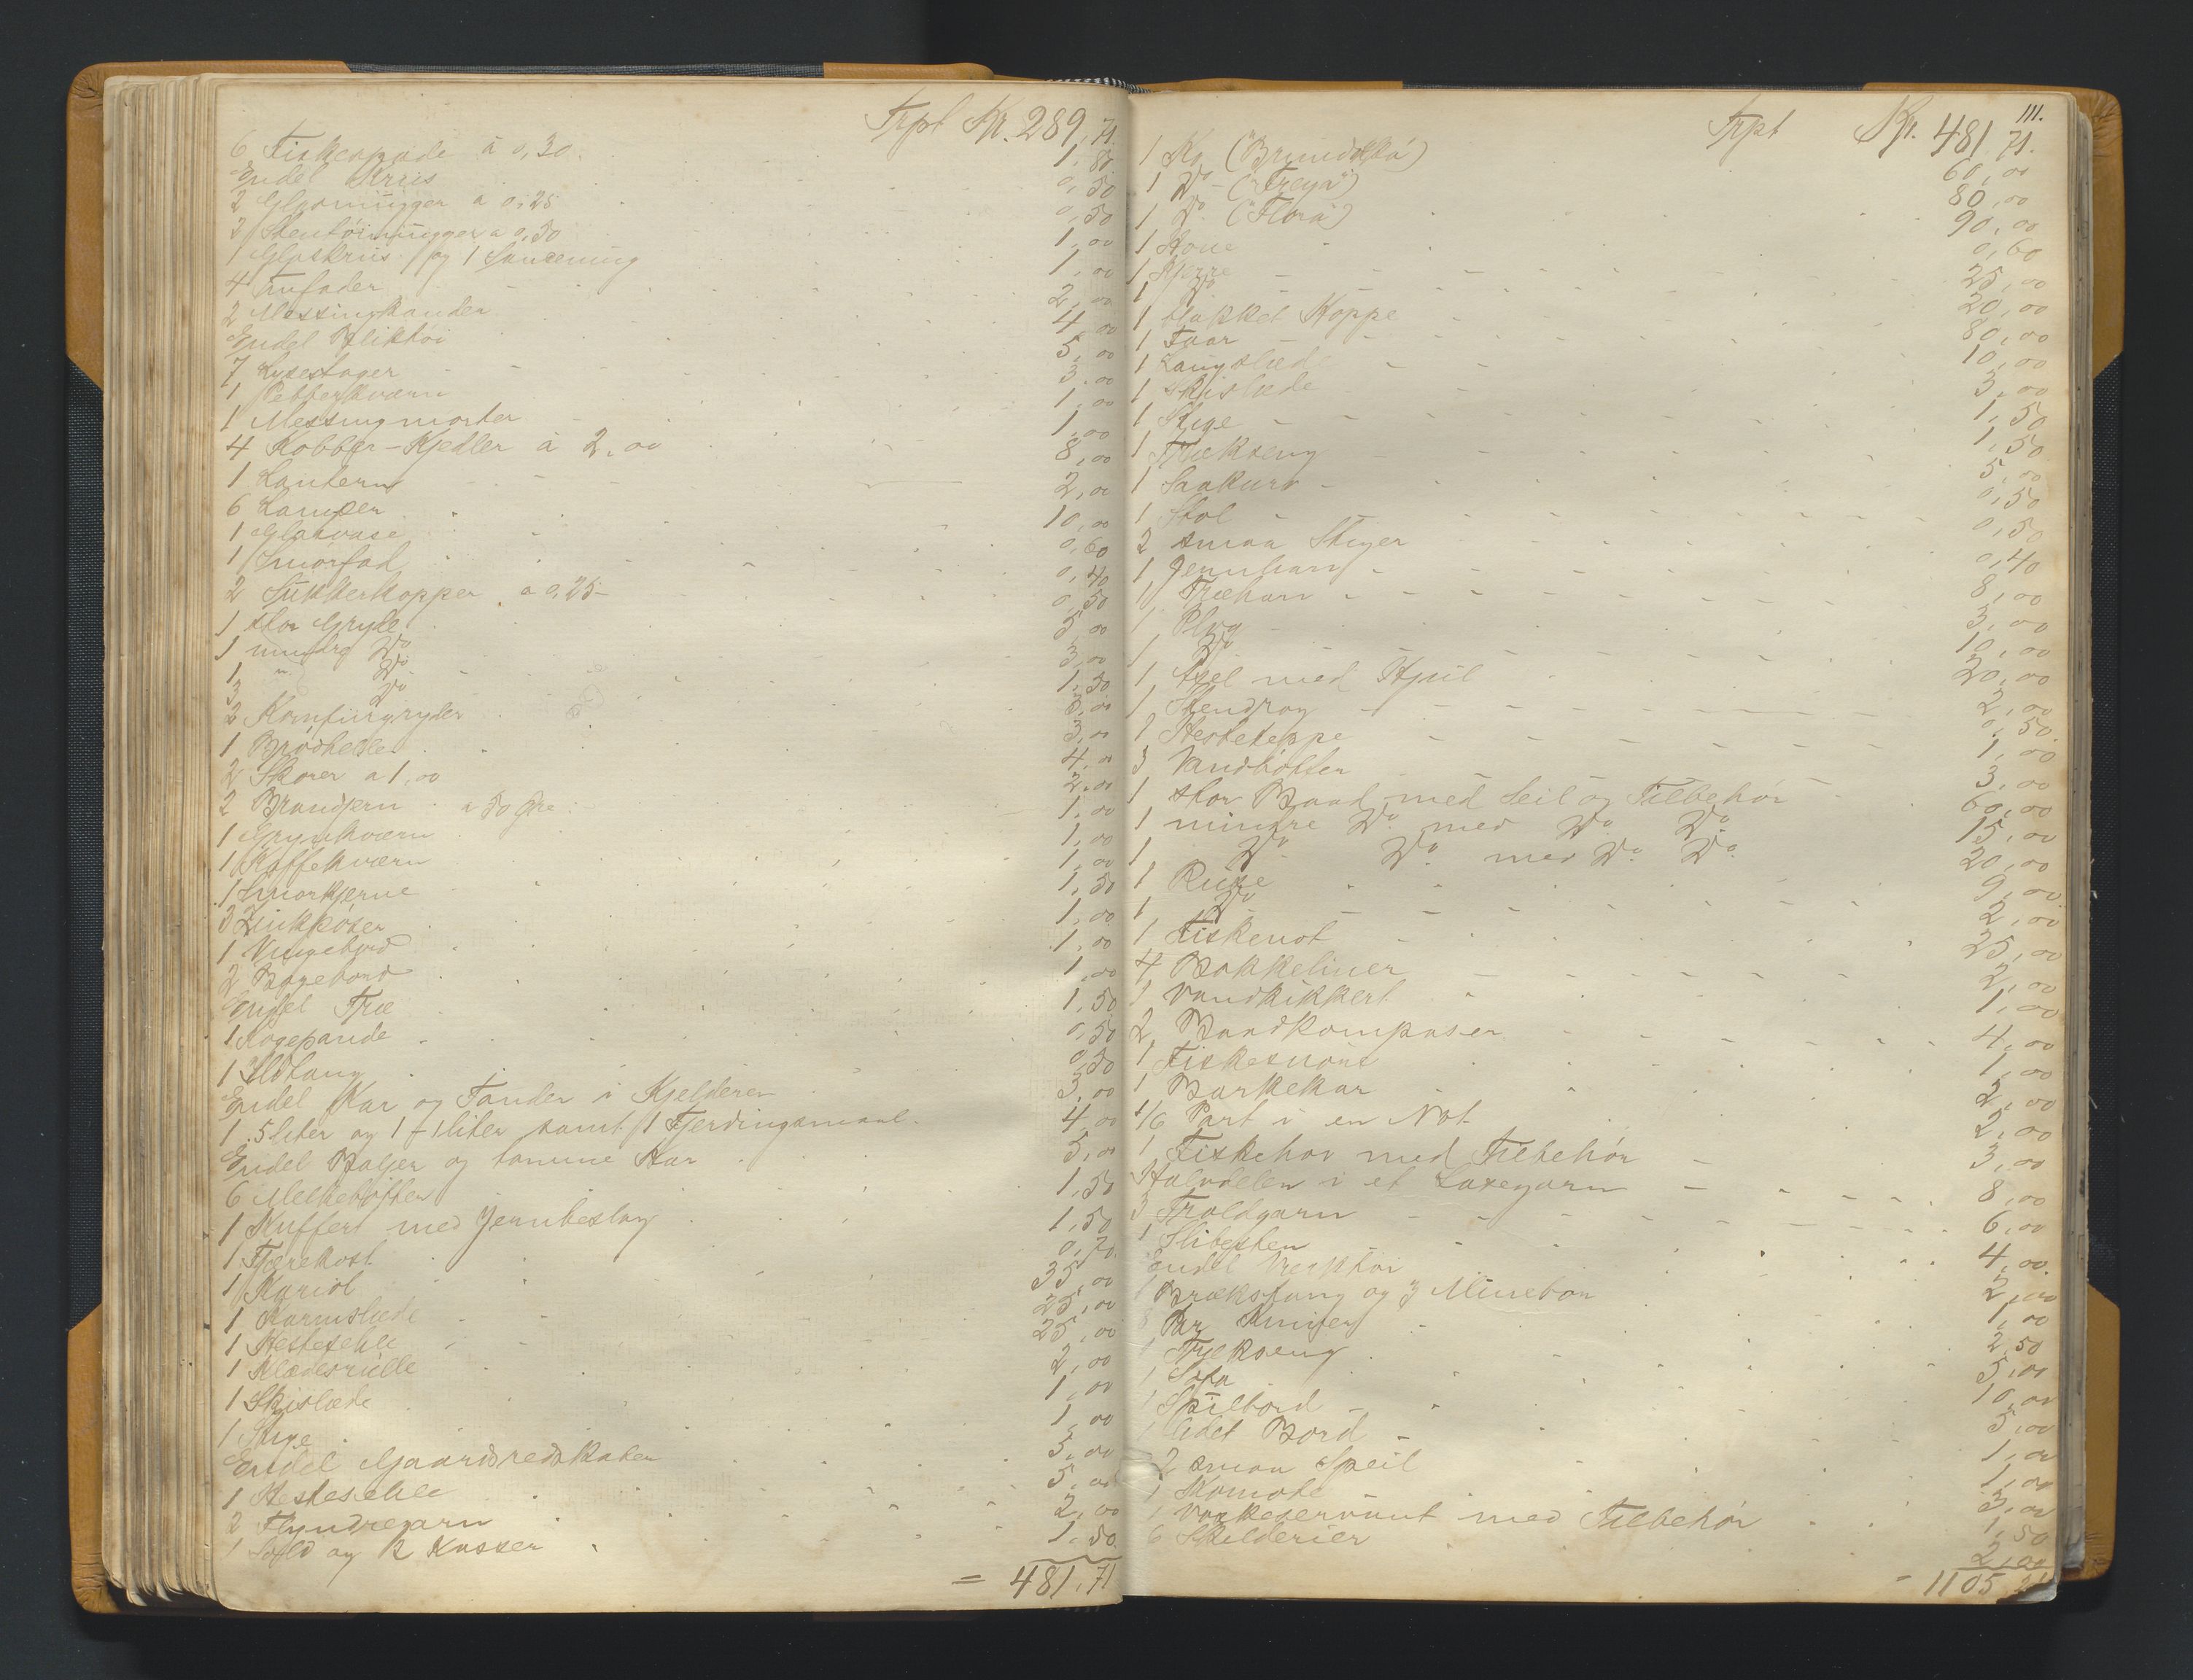 Trpt Kr. 289,71.
6 Fiskespade à 0,30. 1,80
Endel Kruus 0,50
2 Glasmugger a 0,25 0,50
2 Stentøimugger a 0,50 1,00
1 Glaskruus og 1 Saucemug 1,00
4 Tinfader 2,00
2 Messingkander 4,00
Endel Bliktøi 5,00
7 Lysestager 3,00
1 Pebberkværn 1,00
1 Messingmorter 1,00
4 Kobber-Kjedler à 2,00 8,00
1 Lanterne 2,00
6 Lamper 10,00
1 Glasvase 0,60
1 Smørfad 0,40
2 Sukkerkopper a 0,25 0,50
1 stor Gryde 5,00
1 mindre Do 3,00
1 " Do 1,50
3 Do 3,00
2 Komfurgryder 3,00
1 Brødhelle 4,00
2 Skorer a 1,00 2,00
2 Brandjern a 50 Øre 1,00
1 Grynkværn 1,00
1 Kaffekværn 1,00
1 Smørkjerne 1,50
3 Zinkpøser 1,00
1 1,00
2 Bagebord 1,00
Endel Træ 1,50
1 Kogepande 0,50
1 Ildtang 0,30
Endel Kar og Tønder i Kjelderen 3,00
1 5liter og 1 1liter samt 1 Fjerdingsmaal. 4,00
Endel Baljer og tomme Kar 5,00
6 Melkebøtter 1,50
1 Kuffert med Jernbeslag 1,50
1 Tjærekost 0,70
1 Kariol 35,00
1 Karmslæde 25,00
1 Hestesehle 25,00
1 Klædesrulle 2,00
1 Skislæde 1,00
1 Stige 1,00
Endel Gaardsredskaber 5,00
1 Hestesehle 5,00
2 Flyndregarn 2,00
1 Sold og 2 Kasser 1,50
= 481,71
111.
Trpt Kr. 481,71.
1 Ko 60,00
1 Do ("Freya") 80,00
1 Do ("Flora") 90,00
1 0,60
1 Kjerre 25,00
1 Do 20,00
1 blakket Hoppe 80,00
1 Faar 10,00
1 Langslæde 3,00
1 Skislæde 1,50
1 Stige 1,50
1 Trækseng 5,00
1 0,50
1 Stol 0,50
2 smaa Stiger 0,40
1 Jernharv 8,00
1 Træharv 3,00
1 Plog 10,00
1 Do 20,00
1 Axel med Hjul 2,00
1 Stendrog 0,50
1 Hesteteppe 1,00
3 Vandbøtter 3,00
1 stor Baad med Seil og Tilbehør 60,00
1 mindre Do. med Do. Do. 15,00
1 Do. Do. med Do. Do. 20,00
1 Ruse 9,00
1 Do 2,00
1 Fiskenot 25,00
4 Bakkeliner 2,00
1 Vandkikkert 1,00
2 Baadkompaser 4,00
1 1,00
1 Barkekar 2,00
1/6 Part i en Not 2,00
1 Fiskehov med Tilbehør 3,00
Halvdelen i et Laxegarn 8,00
3 Troldgarn 6,00
1 Slibesten 4,00
Endel Værktøi 2,00
1 Brækstang og 3 Minebor 1,00
8 Par Kniver 2,50
1 Trækseng 5,00
1 Sofa 10,00
1 Spilbord 5,00
1 lidet Bord 1,00
2 smaa Speil 1,00
1 Komode 3,00
1 Vaskeservant med Tilbehør 1,50
6 Skilderier 2,00
= 1105,21